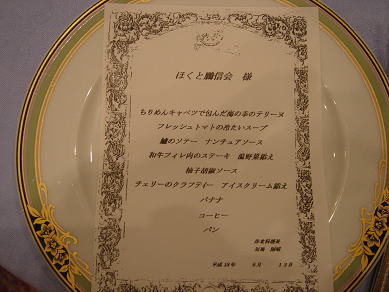 ほくと鵬信会　様
ちりめんキャベツで包んだ海の幸のテリーヌ
フレッシュトマトの冷たいスープ
鱸のソテー　ナンチュアソース
和牛フィレ肉のステーキ　温野菜添え
柚子胡椒ソース
チェリーのクラフティー　アイスクリーム添え
バナナ
コーヒー
パン
洋食料理長
平成18年　8月　13日